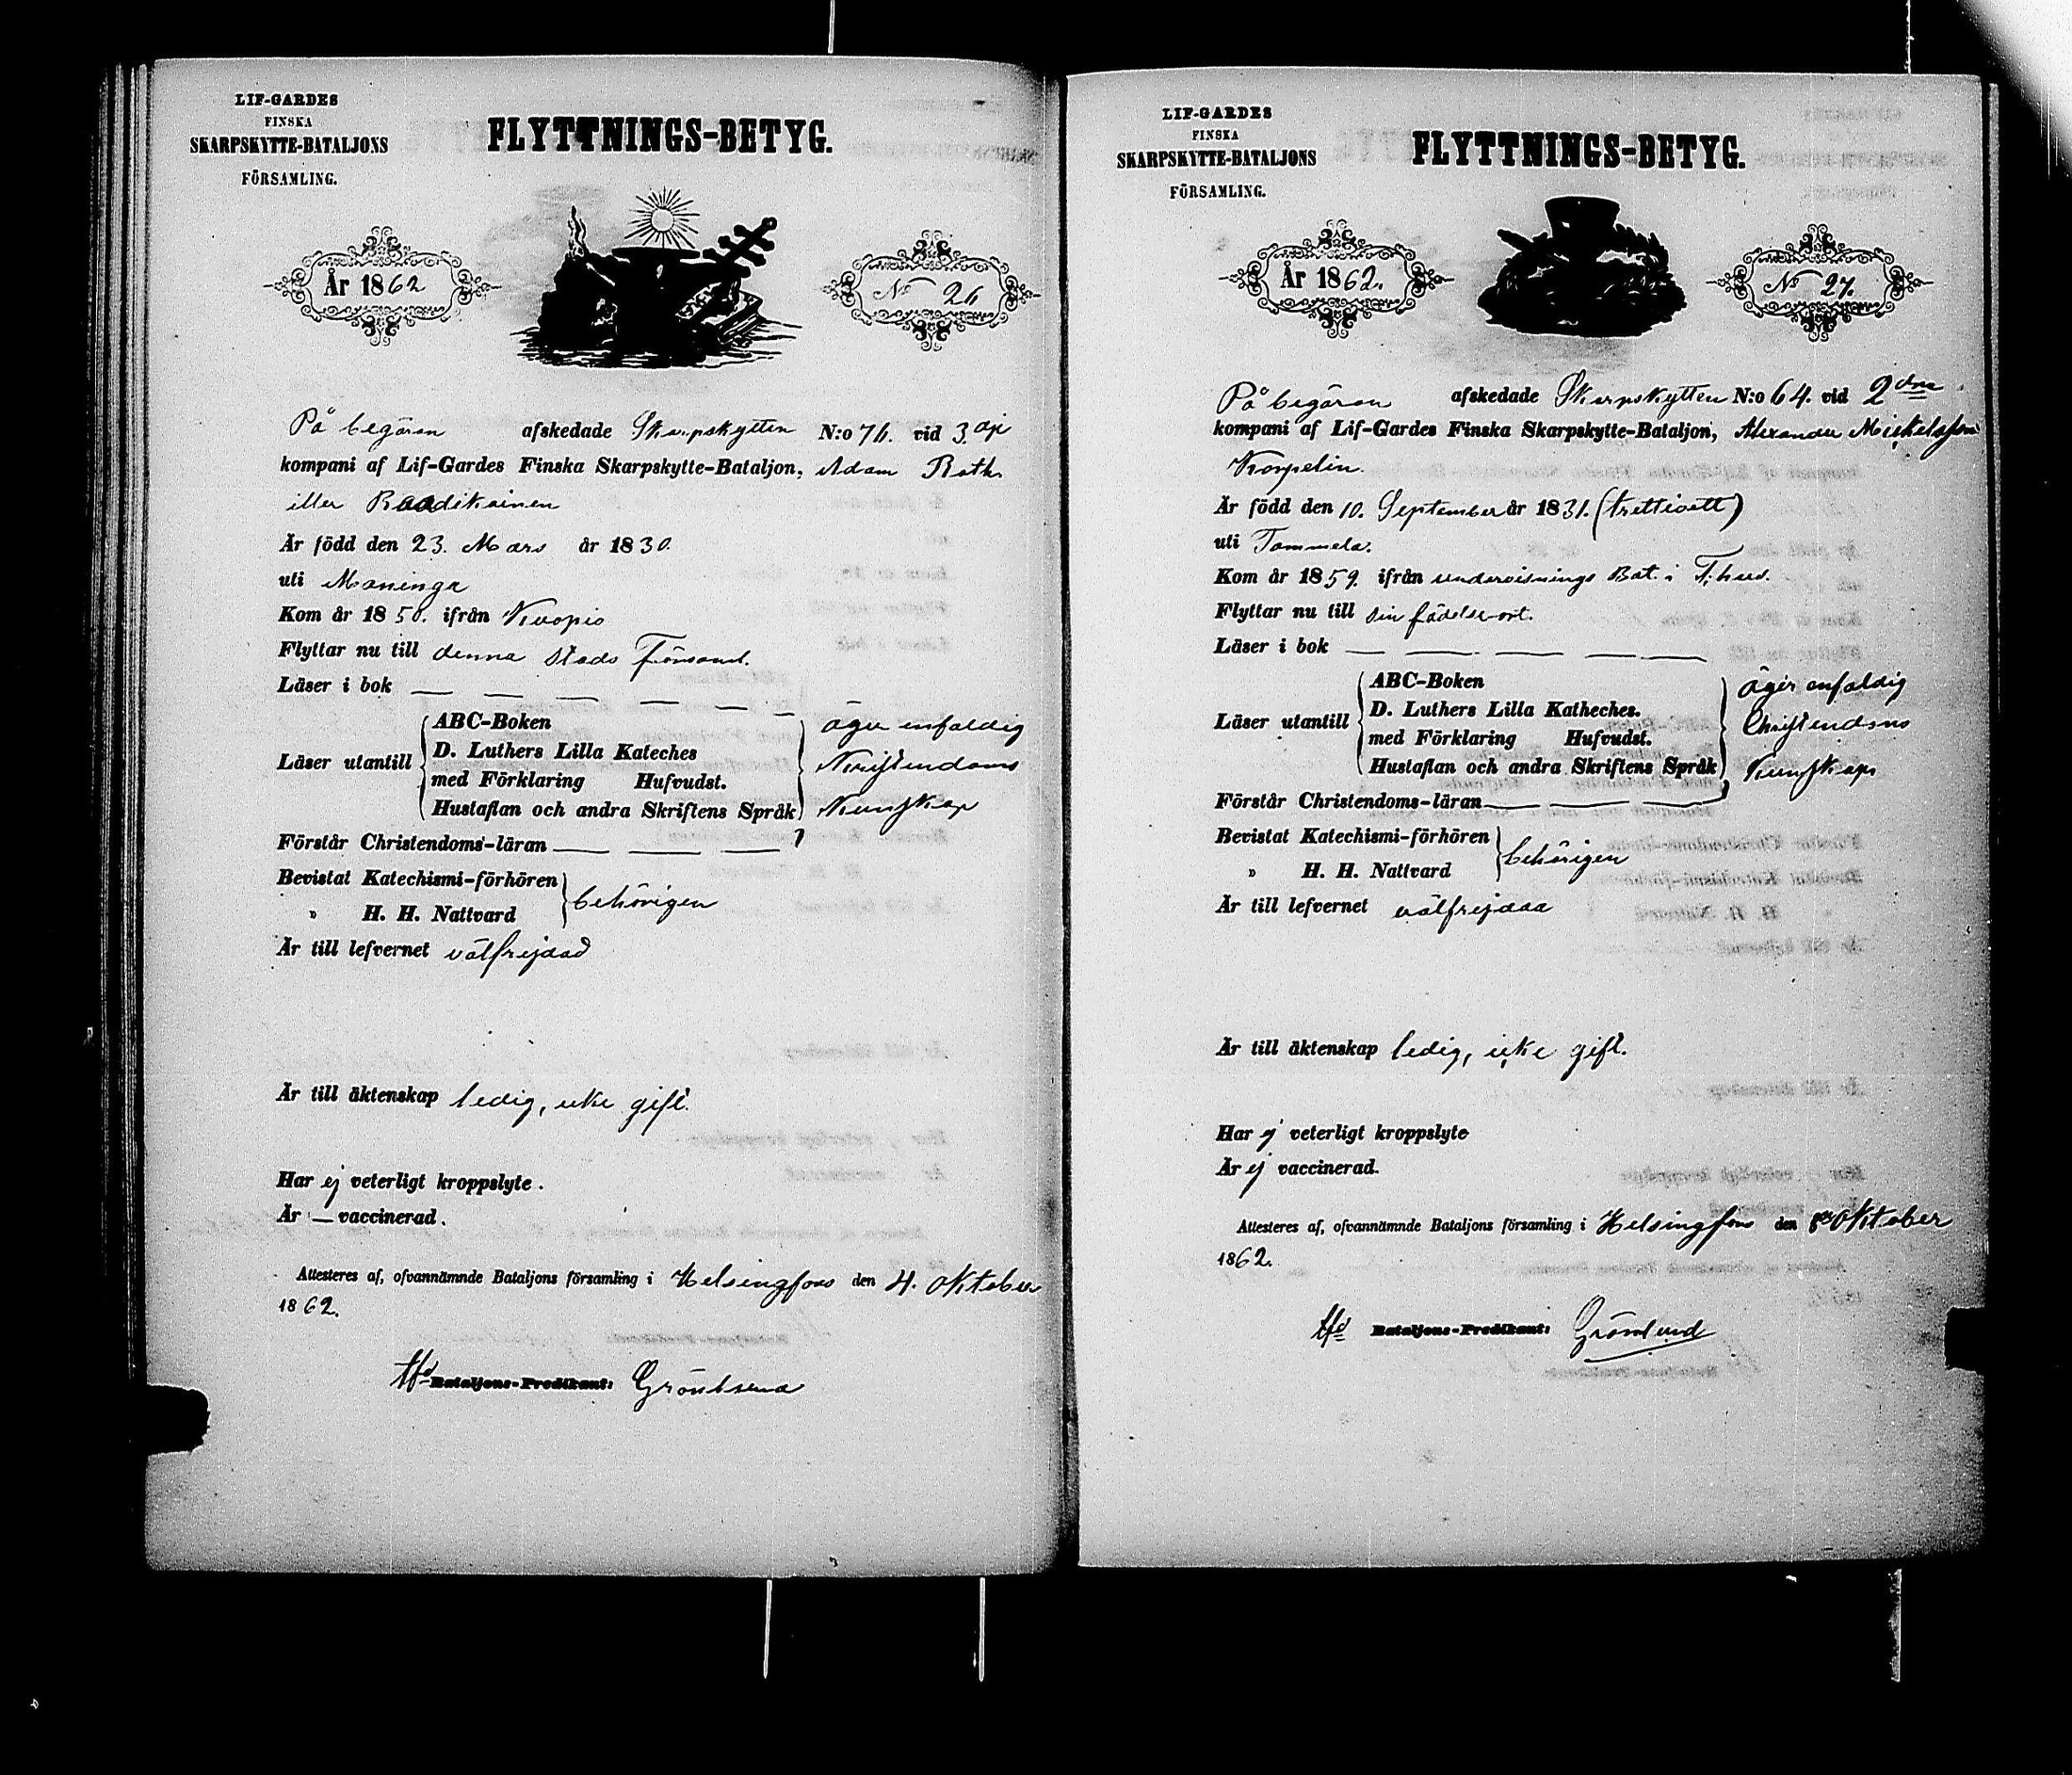 LIF-GARDES
FINSKA
SKARPSKYTTE-BATALJONS
FÖRSAMLING.
FLYTTNINGS-BETYG.
År 1862
No 26
På begäran afskedade Skarpskytten N:o 76. vid 3.dje
kompani af Lif-Gardes Finska Skarpskytte-Bataljon, Adam Roth
eller Raadikainen
Är född den 23. Mars år 1830.
uti Maninga
Kom år 1850. ifrån Kuopio
Flyttar nu till denna stads Församl.
Läser i bok — — — — — —
Läser utantill
ABC-Boken
D. Luthers Lilla Kateches
med Förklaring Hufvudst.
Hustaflan och andra Skriftens Språk
äger enfaldig
Kristendoms
Kunskap
Förstår Christendoms-läran — — —
Bevistat Katechismi-förhören
" H. H. Nattvard
behörigen
Är till lefvernet välfrejdad
Är till äktenskap ledig, icke gift.
Har ej veterligt kroppslyte.
Är — vaccinerad.
Attesteres af, ofvannämnde Bataljons församling i Helsingfors den 4. Oktober
1862.
Bataljons-Predikant: Grönlund
LIF-GARDES
FINSKA
SKARPSKYTTE-BATALJONS
FÖRSAMLING.
FLYTTNINGS-BETYG.
År 1862.
No 27.
På begäran afskedade Skarpskytten N:o 64. vid 2dra
kompani af Lif-Gardes Finska Skarpskytte-Bataljon, Alexander Mickelsson
Korpelin.
Är född den 10. September år 1831. (trettioett)
uti Tammela.
Kom år 1859. ifrån undervisnings Bat. i T:hus.
Flyttar nu till sin födelseort.
Läser i bok — — — — —
Läser utantill
ABC-Boken
D. Luthers Lilla Katheches.
med Förklaring Hufvudst.
Hustaflan och andra Skriftens Språk
äger enfaldig
Christendoms
Kunskap
Förstår Christendoms-läran — — —
Bevistat Katechismi-förhören
" H. H. Nattvard
behörigen
Är till lefvernet välfrejdad
Är till äktenskap ledig, icke gift.
Har ej veterligt kroppslyte
Är ej vaccinerad.
Attesteres af, ofvannämnde Bataljons församling i Helsingfors den Oktober
1862.
Bataljons-Predikant: Grönlund